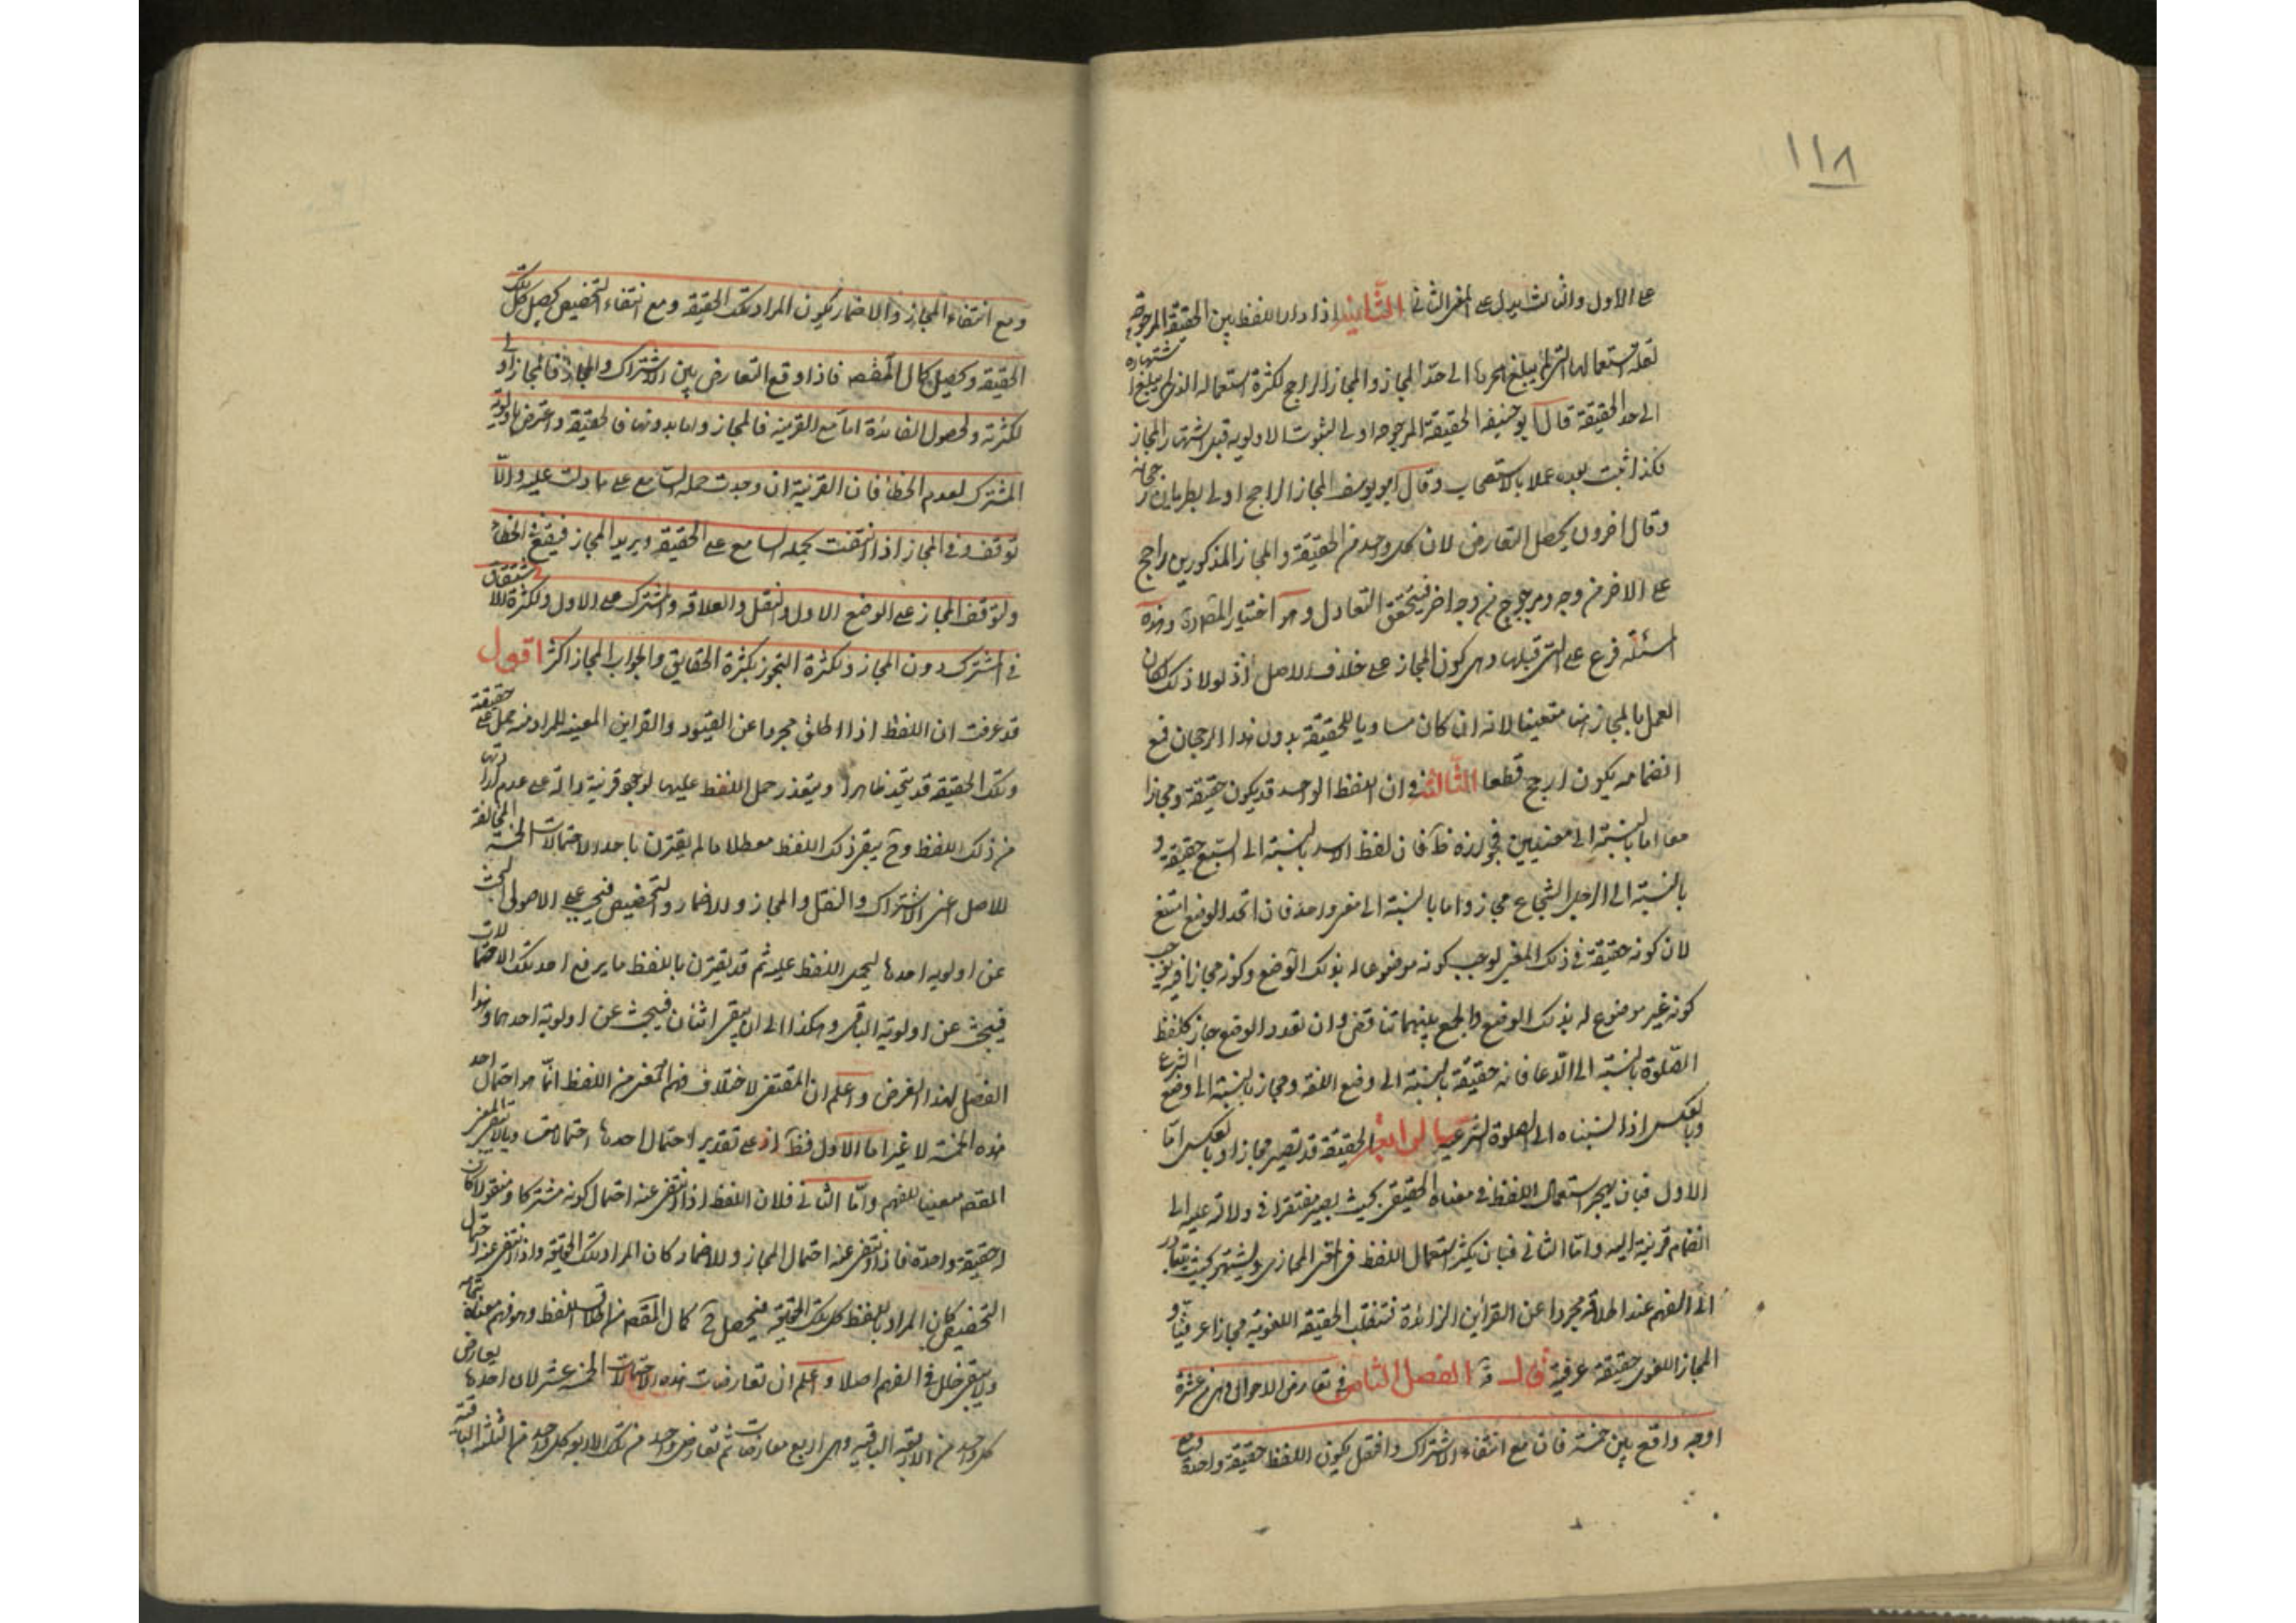 ١١٨
على الاول والثالث يدل على المعنى الثانى الثانية اذا دار اللفظ بين الحقيقة المرجوحة
لقلة استعمالها التى لم يبلغ هجرها الى حد المجاز والمجاز الراجح لكثرة استعماله الذى لم يبلغ اشتهاره
الى حد الحقيقة قال ابو حنيفه الحقيقة المرجوحه اولى لثبوت الاولويه قبل اشتهار المجاز
فكذا ثبت بعده عملا بالاستصحاب وقال ابو يوسف المجاز الراجح اولى لطريان رجحانه
وقال اخرون يحصل التعارض لان كل واحد من الحقيقة والمجاز المذكورين راجح
على الاخر من وجه ومرجوح من وجه اخر فيتحقق التعادل وهو اختيار المصه وهذه
المسئله فرع على التى قبلها وهى كون المجاز على خلاف الاصل اذ لولا ذلك لكان
العمل بالمجاز هنا متعينا لانه ان كان مساويا للحقيقة بدون هذا الرجحان فمع
انضمامه يكون ارجح قطعا الثالثة فى ان اللفظ الواحد قد يكون حقيقة ومجازا
معا اما بالنسبة الى معنيين فجوازه ظ فان لفظ الاسد بالنسبة الى السبع حقيقة و
بالنسبة الى الرجل الشجاع مجاز واما بالنسبة الى معنى واحد فان اتحد الوضع امتنع
لان كونه حقيقة فى ذلك المعنى يوجب كونه موضوعا له بذلك الوضع وكونه مجازا فيه يوجب
كونه غير موضوع له بذلك الوضع والجمع بينهما تناقض وان تعدد الوضع جاز كلفظ
الصلوة بالنسبة الى الدعا فانه حقيقة بالنسبة الى وضع اللغة ومجاز بالنسبة الى وضع الشرع
وبالعكس اذا نسبناه الى الصلوة الشرعيه الرابعة الحقيقة قد تصير مجازا وبالعكس اما
الاول فبان يهجر استعمال اللفظ فى معناه الحقيقى بحيث يصير مفتقرا فى دلالته عليه الى
انضمام قرينة اليه واما الثانى فبان يكثر استعمال اللفظ فى المعنى المجازى ويشتهر بحيث يتبادر
الى الفهم عند اطلاقه مجردا عن القراين الزائدة فتنقلب الحقيقة اللغوية مجازا عرفيا و
المجاز اللغوى حقيقة عرفية قال الفصل الثامن فى تعارض الاحوال وهى من عشرة
اوجه واقع بين خمسة فان مع انتفاء الاشتراك والنقل يكون اللفظ حقيقة واحدة ومع
ومع انتفاء المجاز والاضمار يكون المراد تلك الحقيقة ومع انتفاء التخصيص يحصل كل تلك
الحقيقة ويحصل كمال المقصه فاذا وقع التعارض بين الاشتراك والمجاز فالمجاز اولى
لكثرته ولحصول الفائدة اما مع القرينه فالمجاز واما بدونها فالحقيقة واعترض باولوية
المشترك لعدم الخطا فان القرينة ان وجدت حمله السامع على ما دلت عليه والا
توقف وفى المجاز اذا انتفت يحمله السامع على الحقيقة ويريد المجاز فيقع الخطاء
ولتوقف المجاز على الوضع الاول والنقل والعلاقه والمشترك على الاول ولكثرة الاشتقاق
فى المشترك دون المجاز ولكثرة التجوز بكثرة الحقايق والجواب المجاز اكثر اقول
قد عرفت ان اللفظ اذا اطلق مجردا عن القيود والقراين المعينة للمراد منه حمل على حقيقته
وتلك الحقيقة قد تتحد ظاهرا ويتعذر حمل اللفظ عليها لوجود قرينة دالة على عدم ارادتها
من ذلك اللفظ وح يبقى ذلك اللفظ معطلا ما لم يقترن باحد الاحتمالات الخمسة المخالفة
للاصل اعنى الاشتراك والنقل والمجاز والاضمار والتخصيص فيجب على الاصولى البحث
عن اولويه احدها ليحمل اللفظ عليه ثم قد يقترن باللفظ ما يرفع احد تلك الاحتمالات
فيبحث عن اولوية الباقى وهكذا الى ان يبقى اثنان فيبحث عن اولوية احدهما وهذا
الفصل لهذا الغرض واعلم ان المقتضى لاختلاف فهم المعنى من اللفظ انما هو احتمال احد
هذه الخمسة لا غير اما الاول فظ اذ على تقدير احتمال احدها
المقصه معينا للفهم واما الثانى فلان اللفظ اذا انتفى عنه احتمال كونه مشتركا ومنقولا كان
لحقيقة واحدة فاذا انتفى عنه احتمال المجاز والاضمار كان المراد تلك الحقيقة واذا انتفى عنه احتمال
التخصيص كان المراد باللفظ كل تلك الحقيقة فيحصل ح كمال المقصه من اطلاق اللفظ وهو فهم معناه بتمامه
ولا يبقى خلل فى الفهم اصلا واعلم ان تعارضات هذه الاحتمالات الخمسة عشر لان احدها يعارض
كل واحد من الاربعة الباقية وهى اربع معارضات ثم تعارض واحد من تلك الاربعة كل واحد من الثلثة الباقية